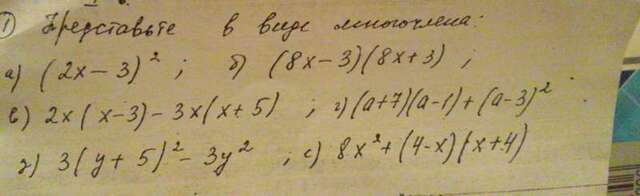 1) Представьте в виде многочлена:
а) (2x-3)²; б) (8x-3)(8x+3);
в) 2x(x-3)-3x(x+5); г) (a+7)(a-1)+(a-3)²
д) 3(y+5)²-3y²; е) 8x²+(4-x)(x+4)